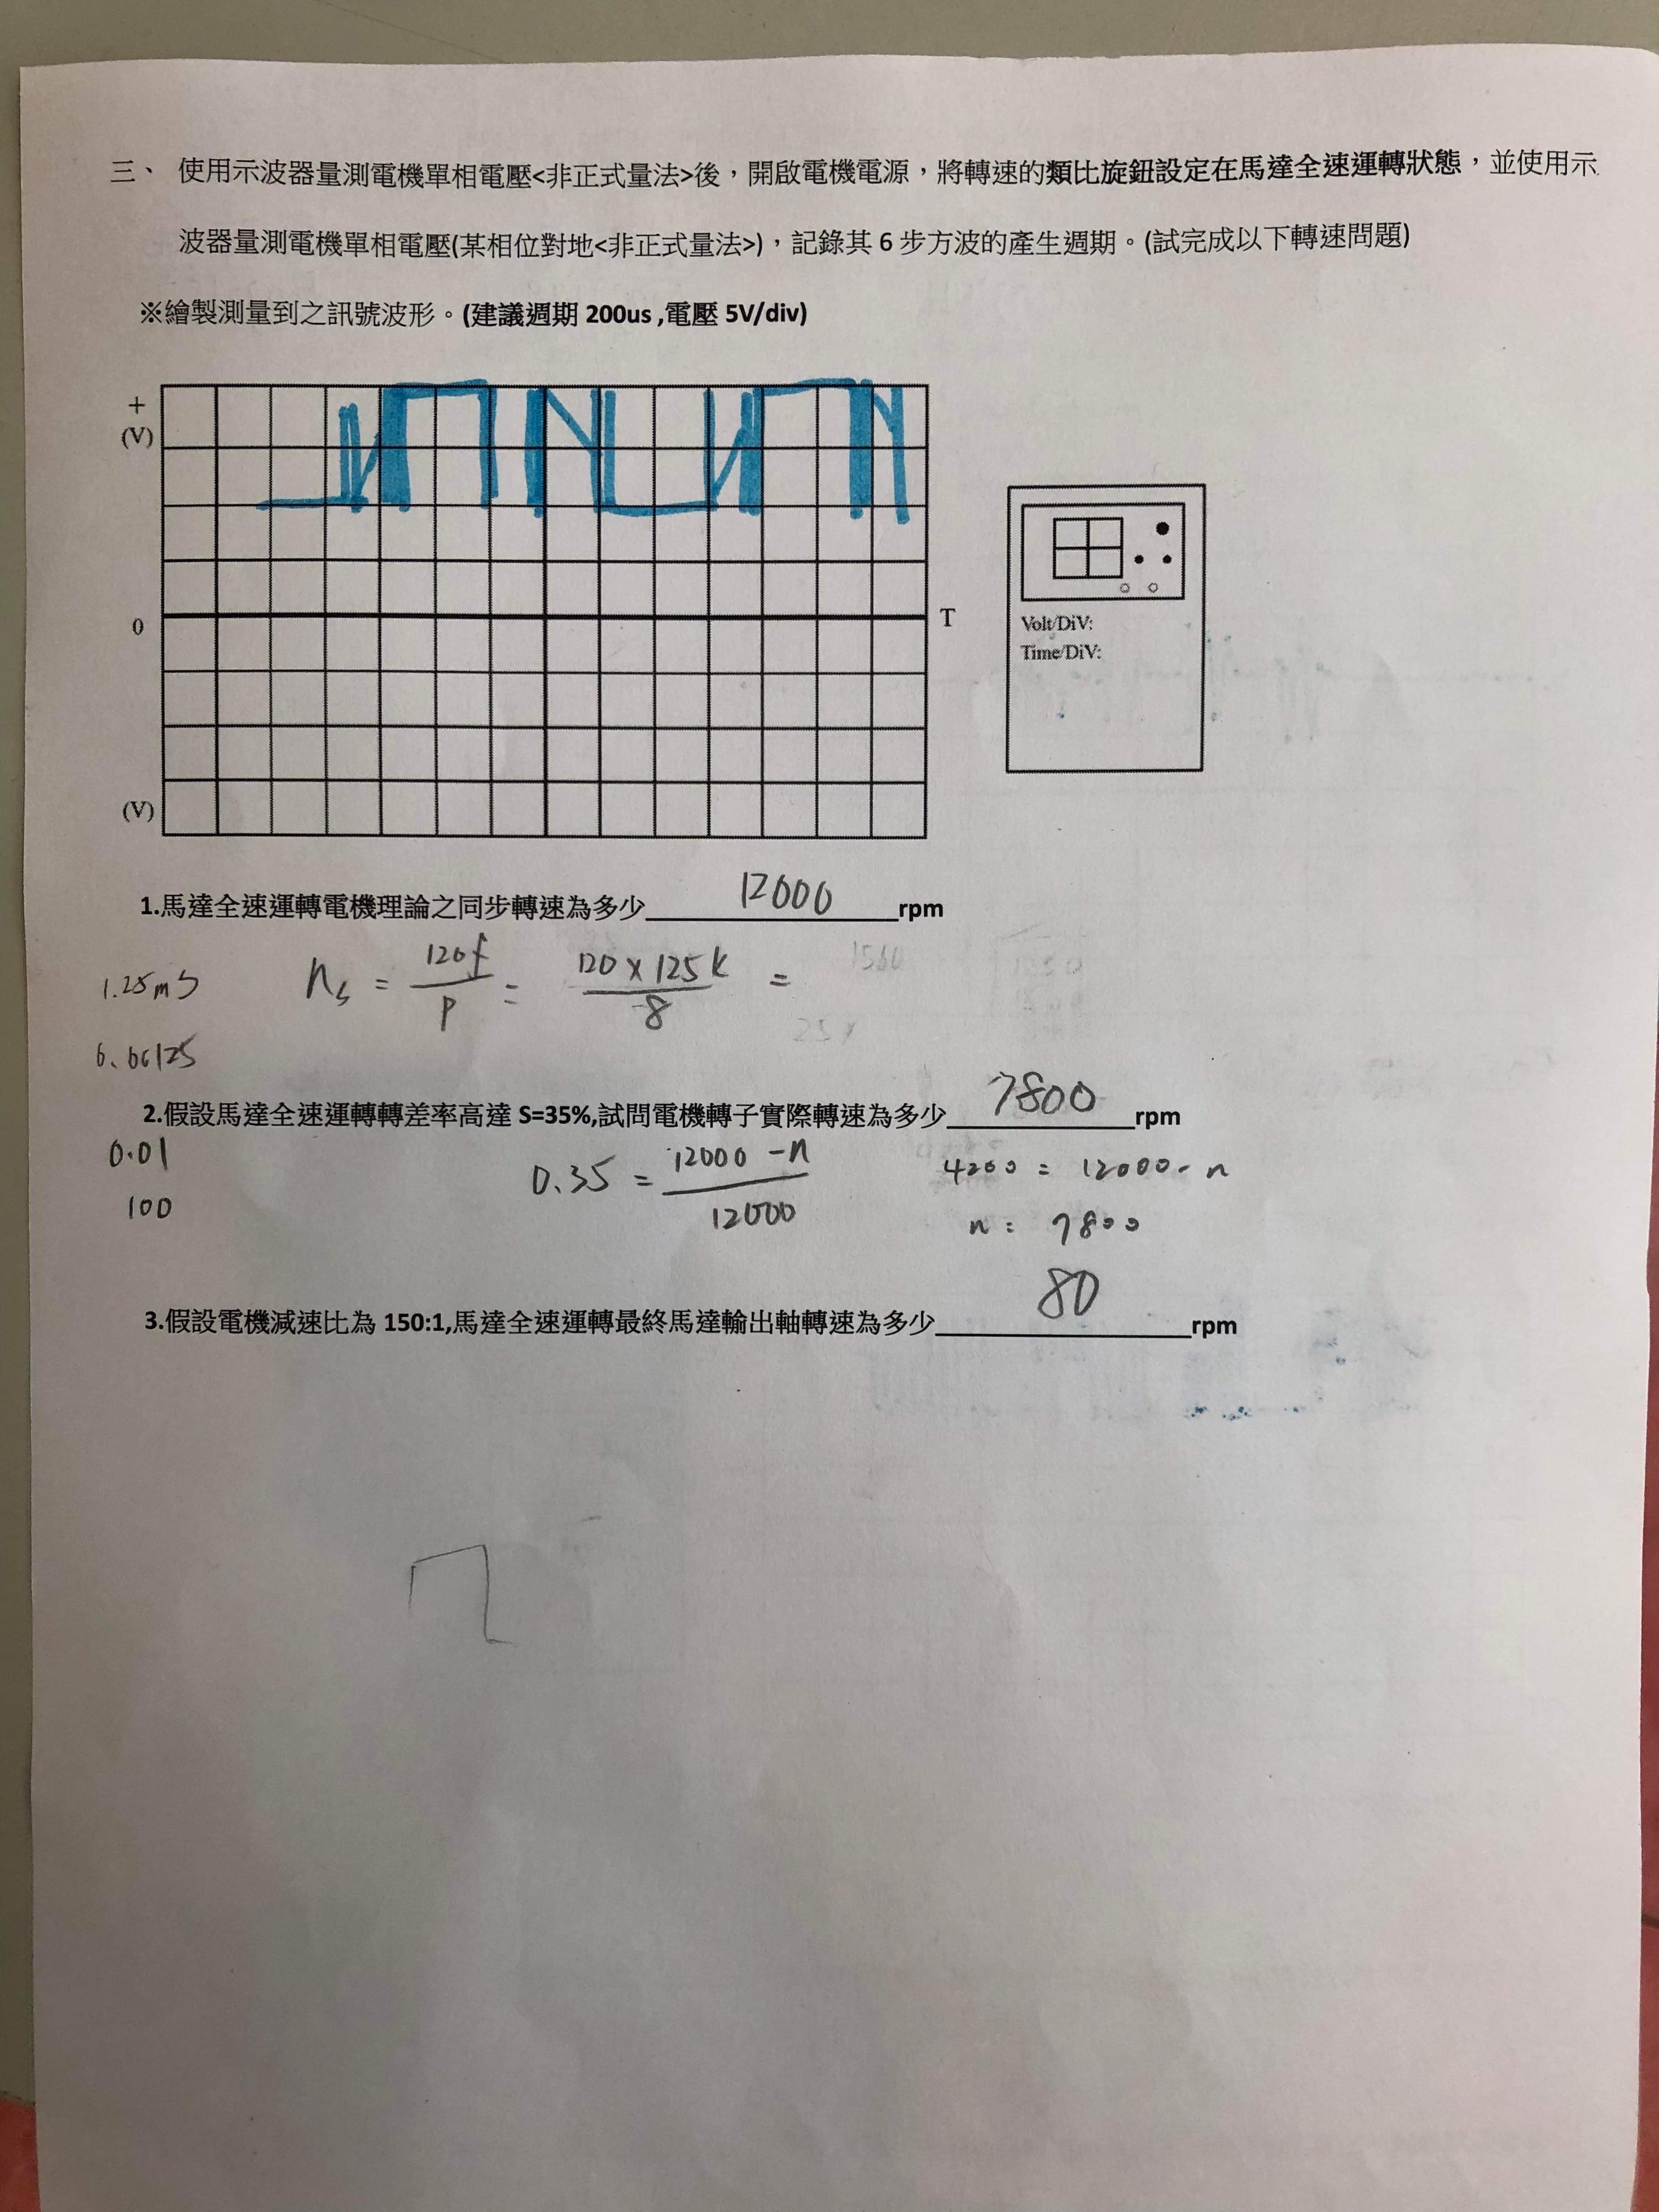 三、 使用示波器量測電機單相電壓<非正式量法>後，開啟電機電源，將轉速的類比旋鈕設定在馬達全速運轉狀態，並使用示
波器量測電機單相電壓(某相位對地<非正式量法>)，記錄其 6 步方波的產生週期。(試完成以下轉速問題)
※繪製測量到之訊號波形。(建議週期 200us ,電壓 5V/div)
+
(V)
0
T
(V)
Volt/DiV:
Time/DiV:
1.馬達全速運轉電機理論之同步轉速為多少 12000 rpm
1.25mS
ns = 120f / P = 120 x 125k / 8 =
1500
2.假設馬達全速運轉轉差率高達 S=35%,試問電機轉子實際轉速為多少 7800 rpm
0.01
0.35 = 12000 - n / 12000
4200 = 12000 - n
100
n = 7800
3.假設電機減速比為 150:1,馬達全速運轉最終馬達輸出軸轉速為多少 80 rpm